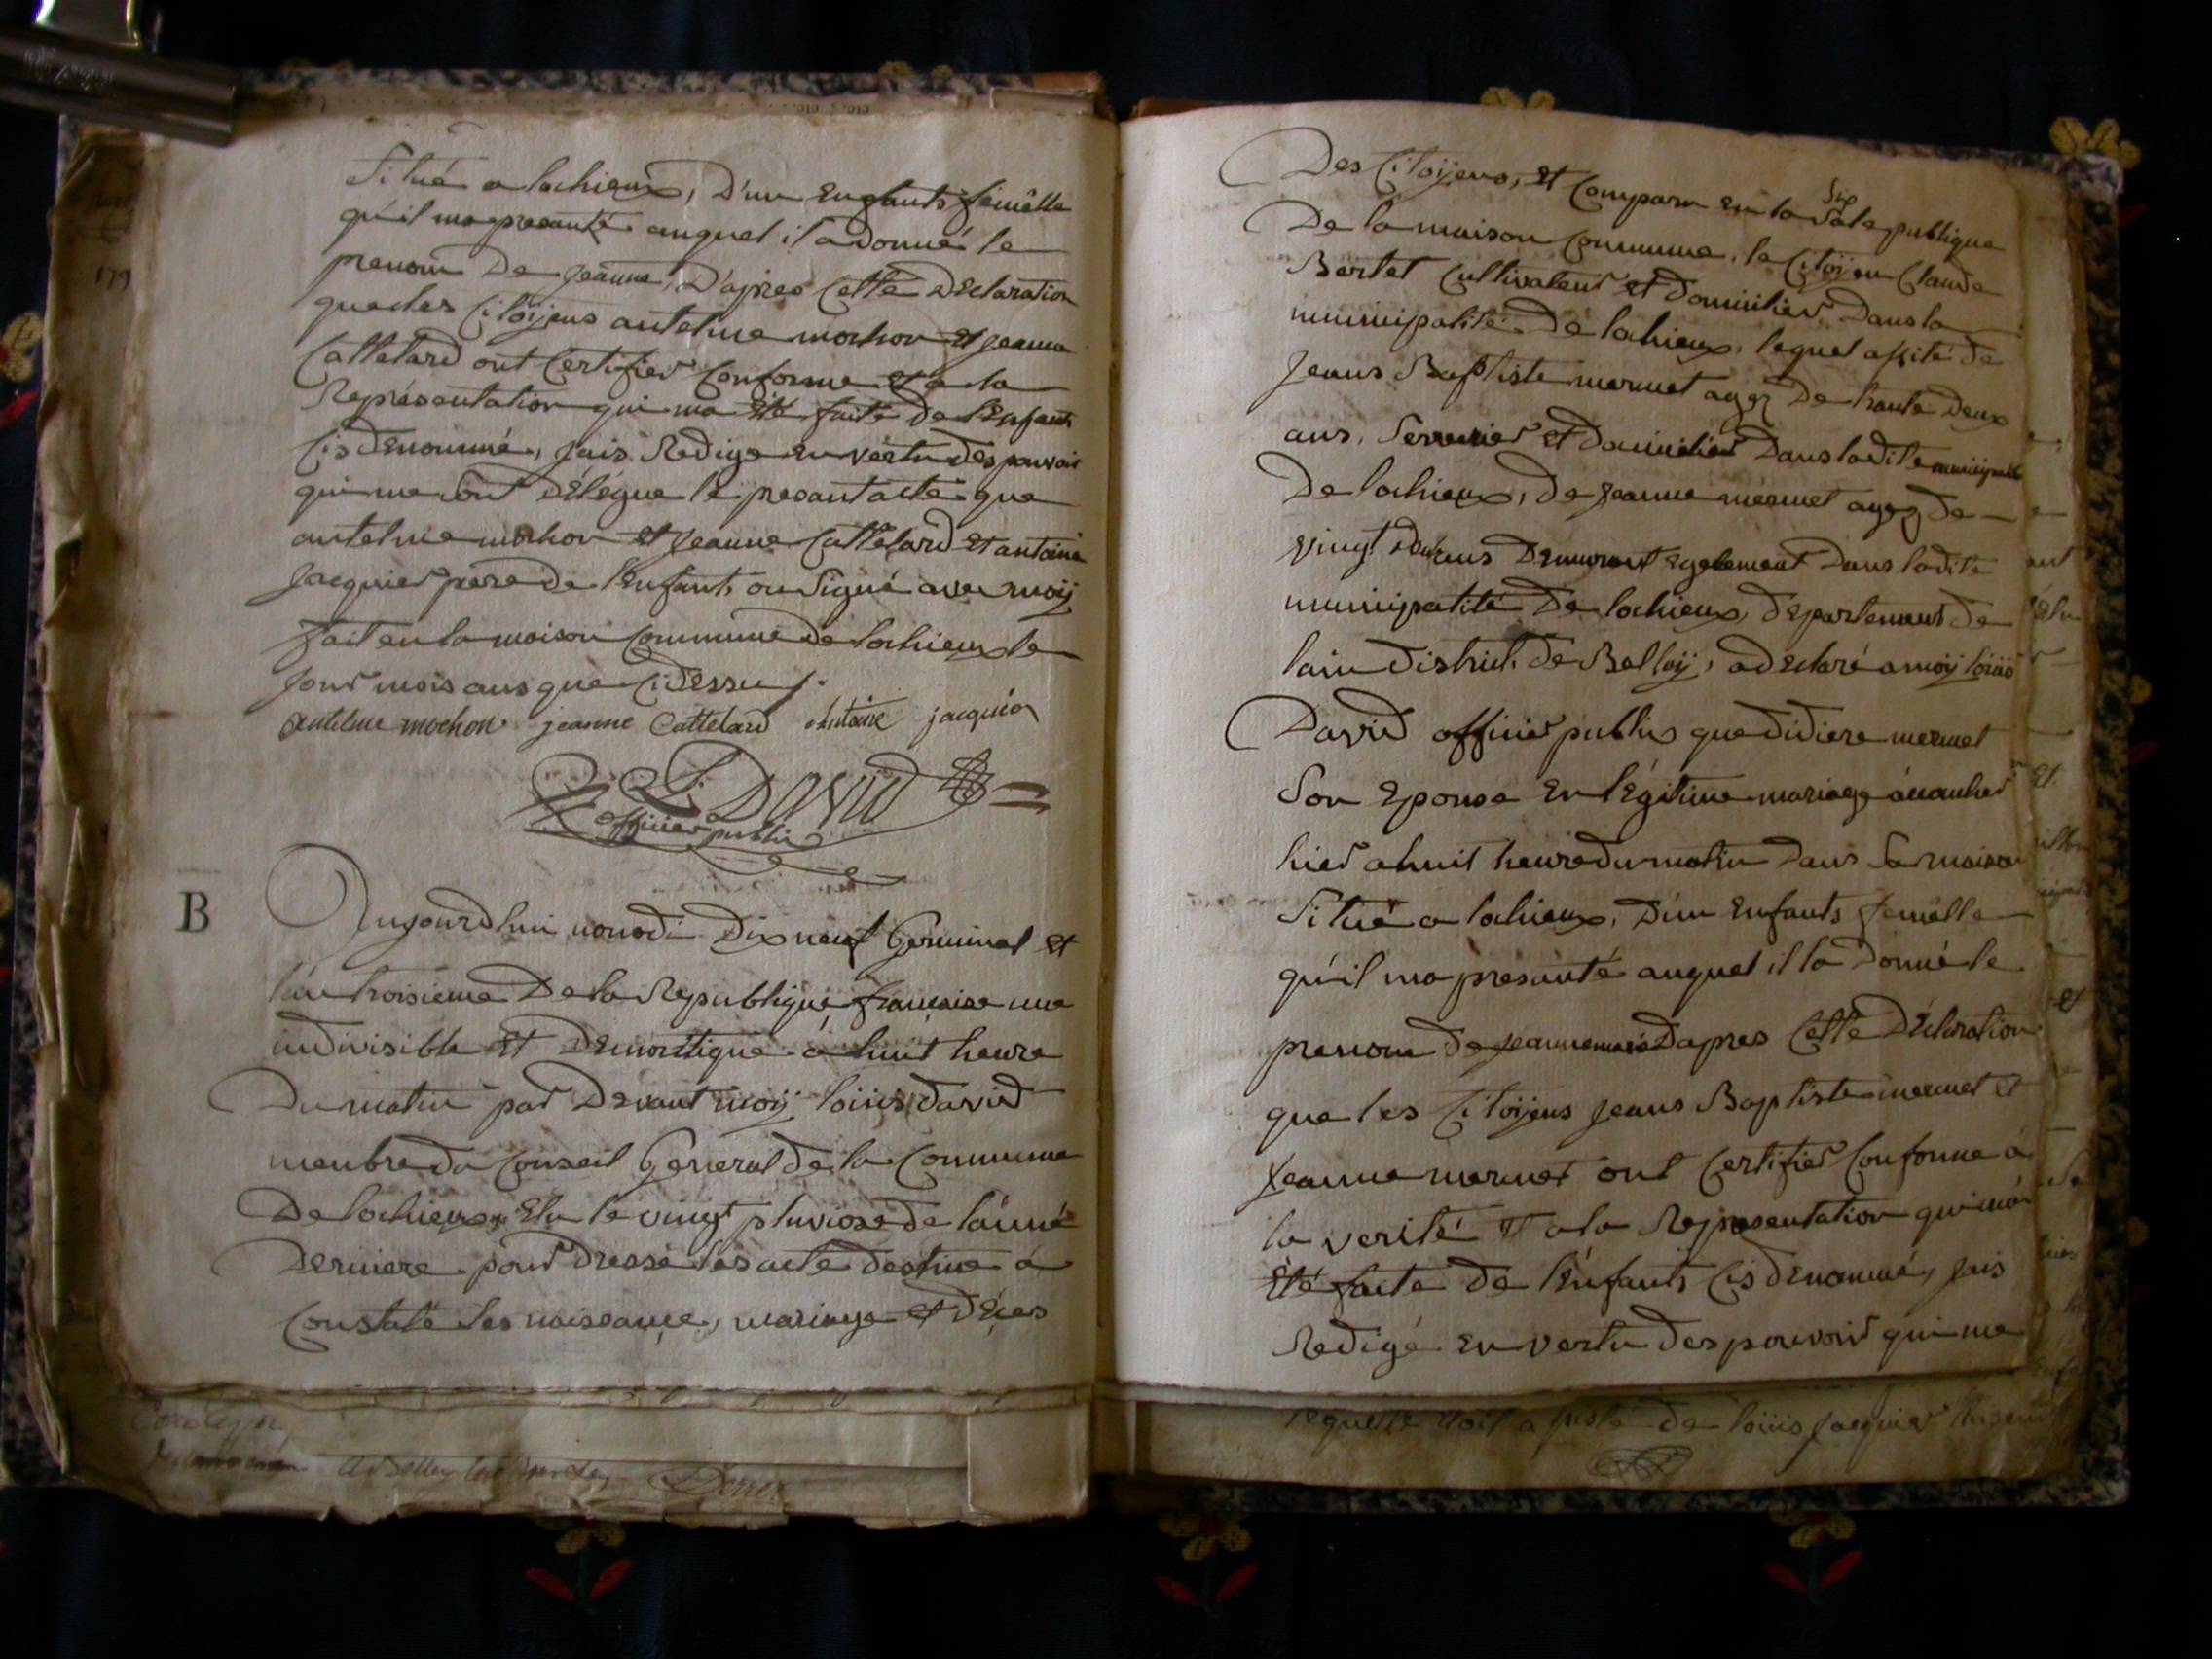 Situé a lochieux, D'un Enfants femêlle
qu'il ma presanté auquel il a donné le
prenom De Jeanne, D'apres Cette Declaration
que les Citoijens antelme mochon Et Jeanne
Cattelard ont Certifier Conforme Et a la
Représentation qui ma Eté faite de l'Enfant
Cis denommé, Jais Redige en vertu des pouvoir
qui me sont Délégué le presant acte que
antelme mochon et Jeanne Cattelard Et antoine
Jacquier pere de l'Enfants on Signé avec moij
fait en la maison Commune de lochieux le
Jour mois ans que Cidessus.
antelme mochon jeanne Cattelard antoine jacquier
L. David
officier public
179
B
Aujourdhui nonodi Dix neuf Germinal Et
l'an troisieme De la Republique francaise une
indivisible Et Democtique a huit heure
Du matin par Devant moij loüis David
menbre du Conseil General de la Commune
De lochieux Elu le vingt pluviose de l'anné
Derniere pour Dressé les acte destiné á
Constaté les naiseance, mariage et Déces
Des Citoijens, Et Comparu En la Sale publique
De la maison Commune, le Citoijen Claude
Bertet Cultivateur Et Domicilier Dans la
municipalité De lochieux, lequel assité de
Jeans Baptiste mermet agez De trante Deux
ans, Serrurier Et Domicilier Dans ladite municipalité
De lochieux, De Jeanne mermet agez de
vingt ans Demeurant Egalement Dans ladite
municipalité De lochieux, Departement de
lain District de Belleij, a Declaré a moij loüis
David officier publis que didiere mermet
Son Epouse En légitime mariage
hier a huit heure du matin Dans Sa maison
Situé a lochieux, D'un Enfants femêlle
qu'il ma présanté auquel il la Donné le
prenom de Jeannemarie D'apres Cette Déclaration
que les Citoijens Jeans Baptiste mermet et
Jeanne mermet ont Certifier Conforme á
la verité Et a la Representation qui má
Eté faite de l'Enfants Cis denommé, Jais
Redigé En vertu des pouvoir qui me
de loüis Jacquier